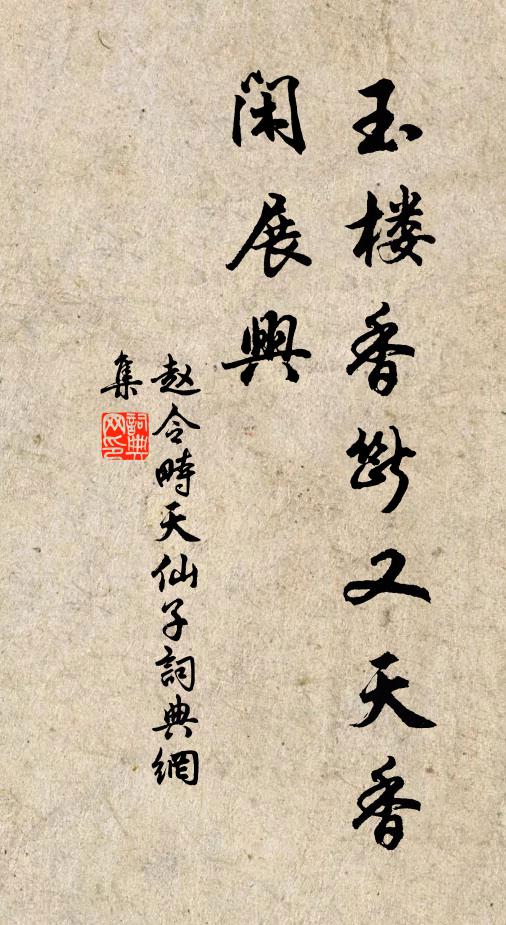 玉楼香断又天香
闲展興
赵令畤天仙子詞典網
集
詞典
网印